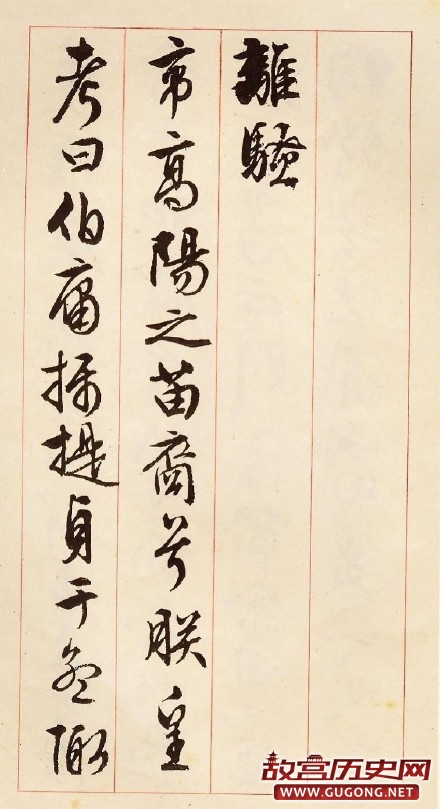 離騷
帝高陽之苗裔兮朕皇
考曰伯庸攝提貞于孟陬
故宫历史网
WWW.GUGONG.NET